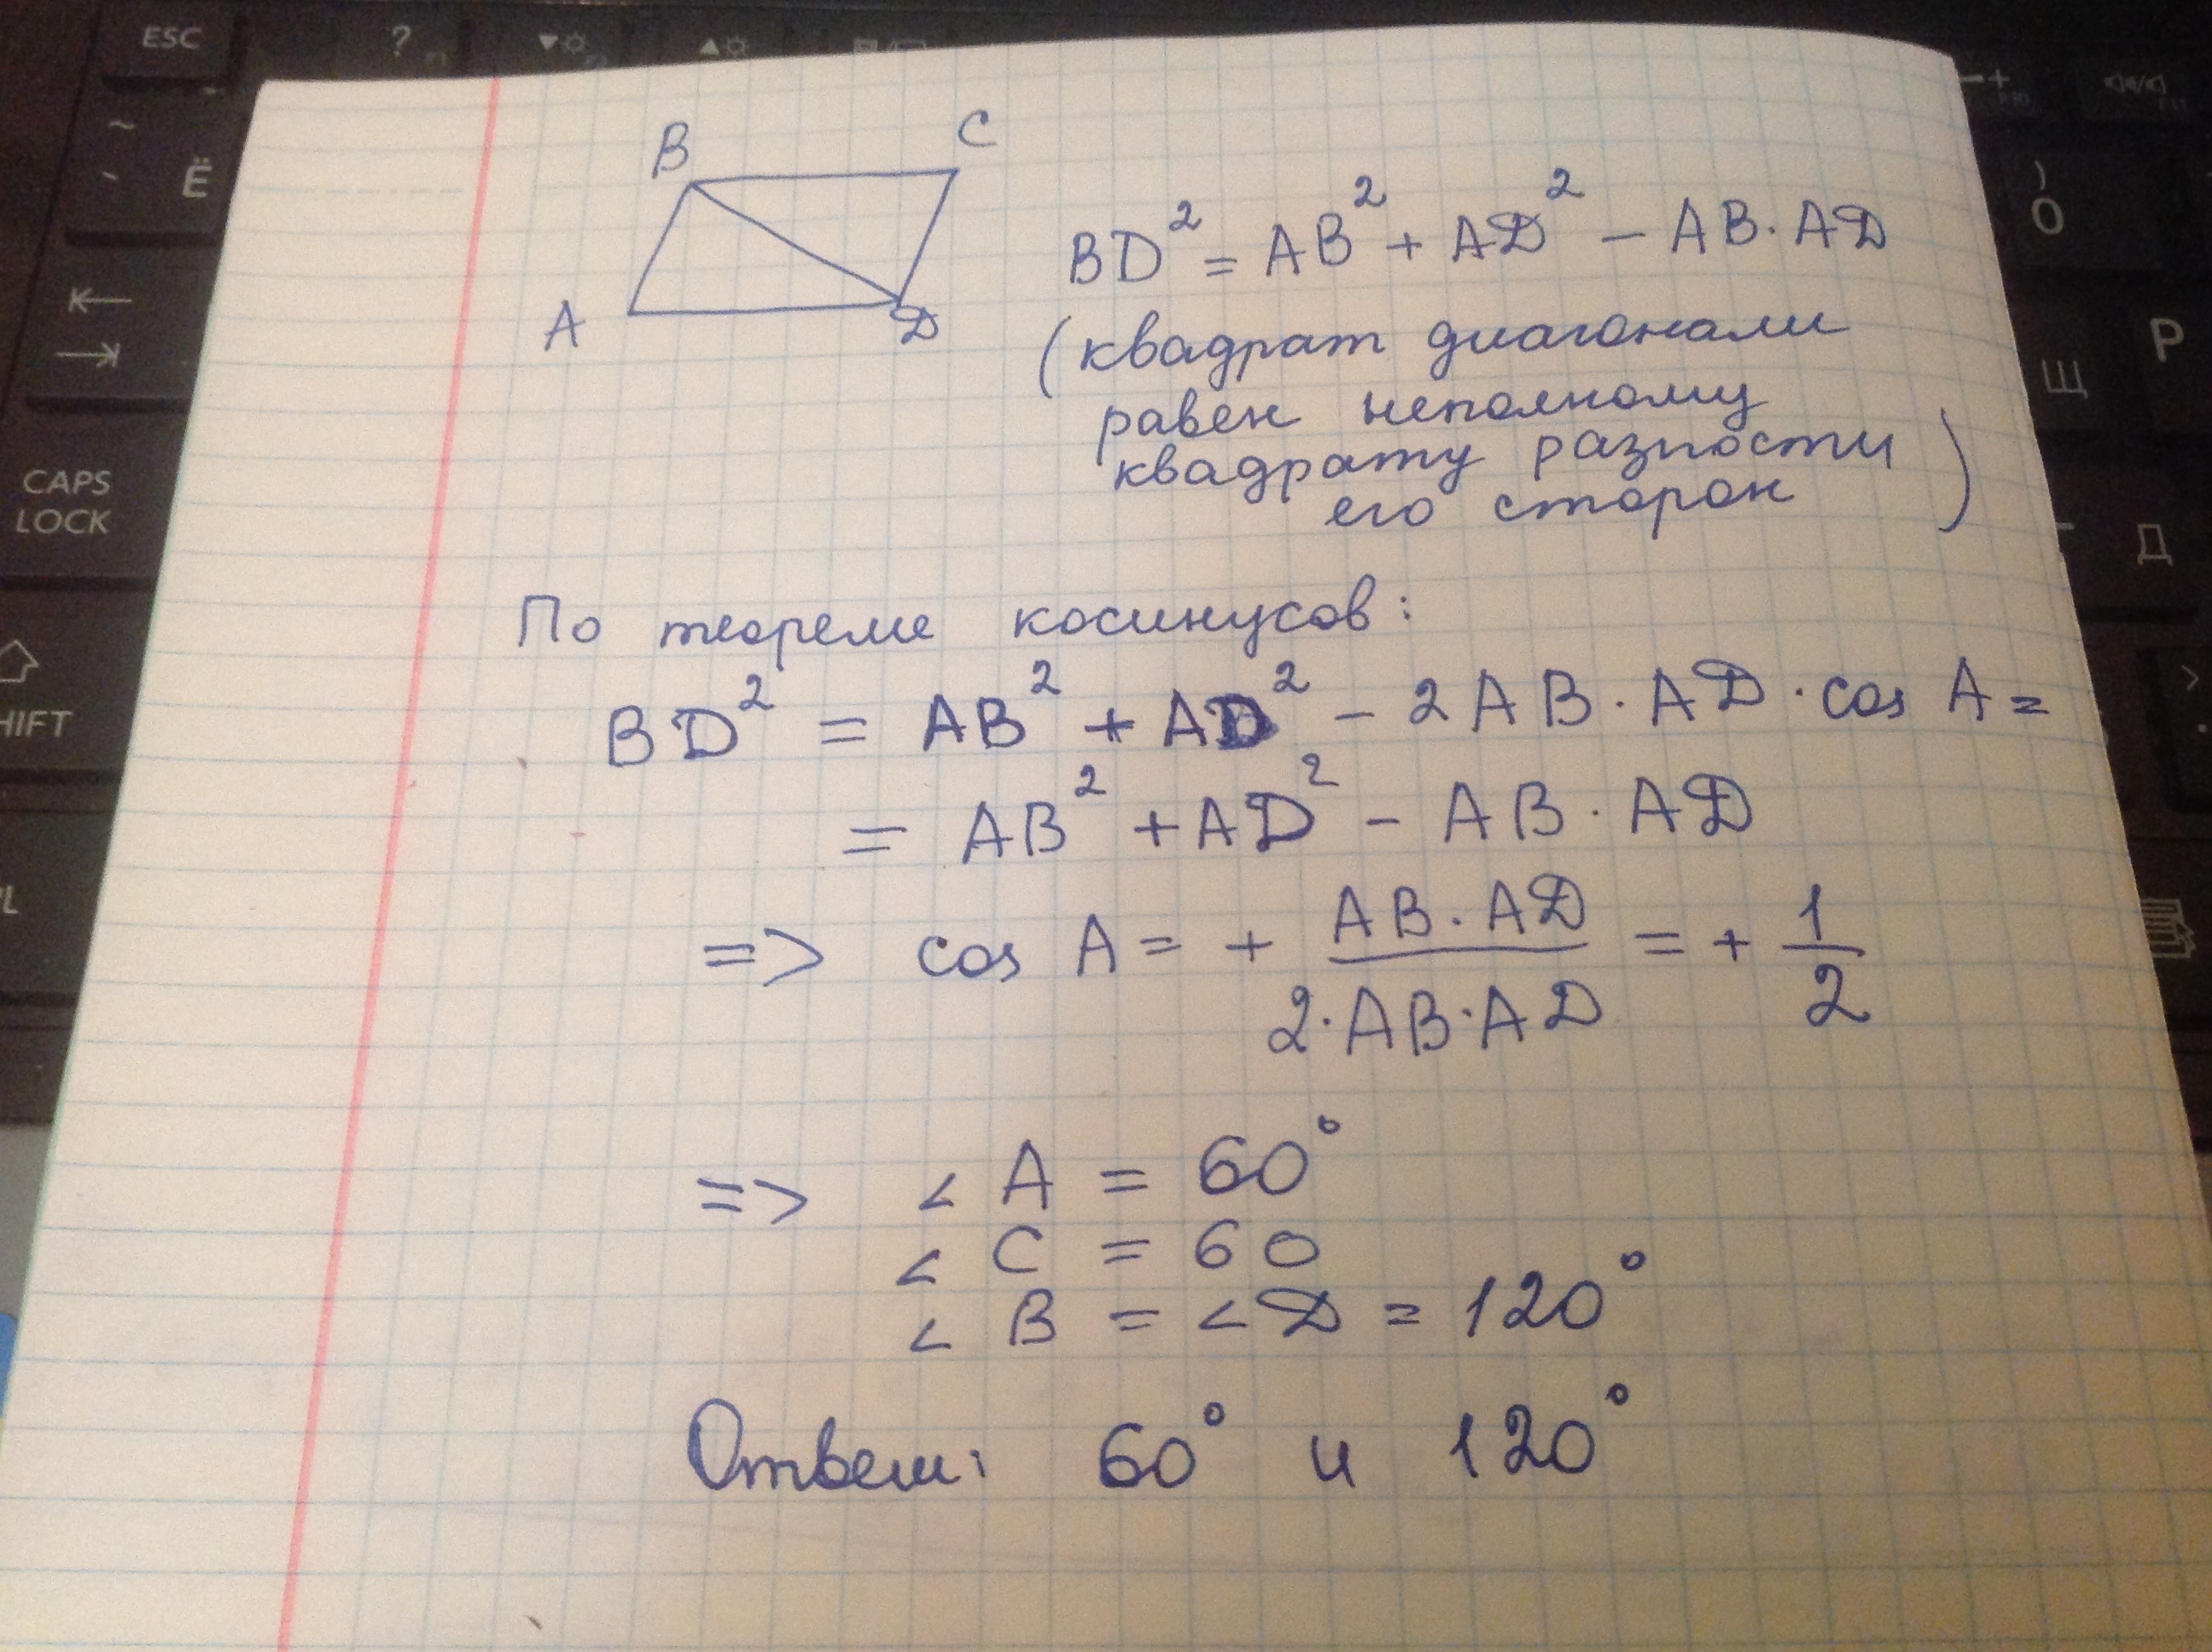 ESC
?
~
Ё
CAPS
LOCK
HIFT
)
О
Р
Щ
Д
B
C
A
D
BD² = AB² + AD² − AB · AD
(квадрат диагонали
равен неполному
квадрату разности
его сторон)
По теореме косинусов:
BD² = AB² + AD² − 2AB · AD · cos A =
= AB² + AD² − AB · AD
=> cos A = + AB · AD / 2 · AB · AD = + 1/2
=> ∠ A = 60°
∠ C = 60
∠ B = ∠ D = 120°
Ответ: 60° и 120°